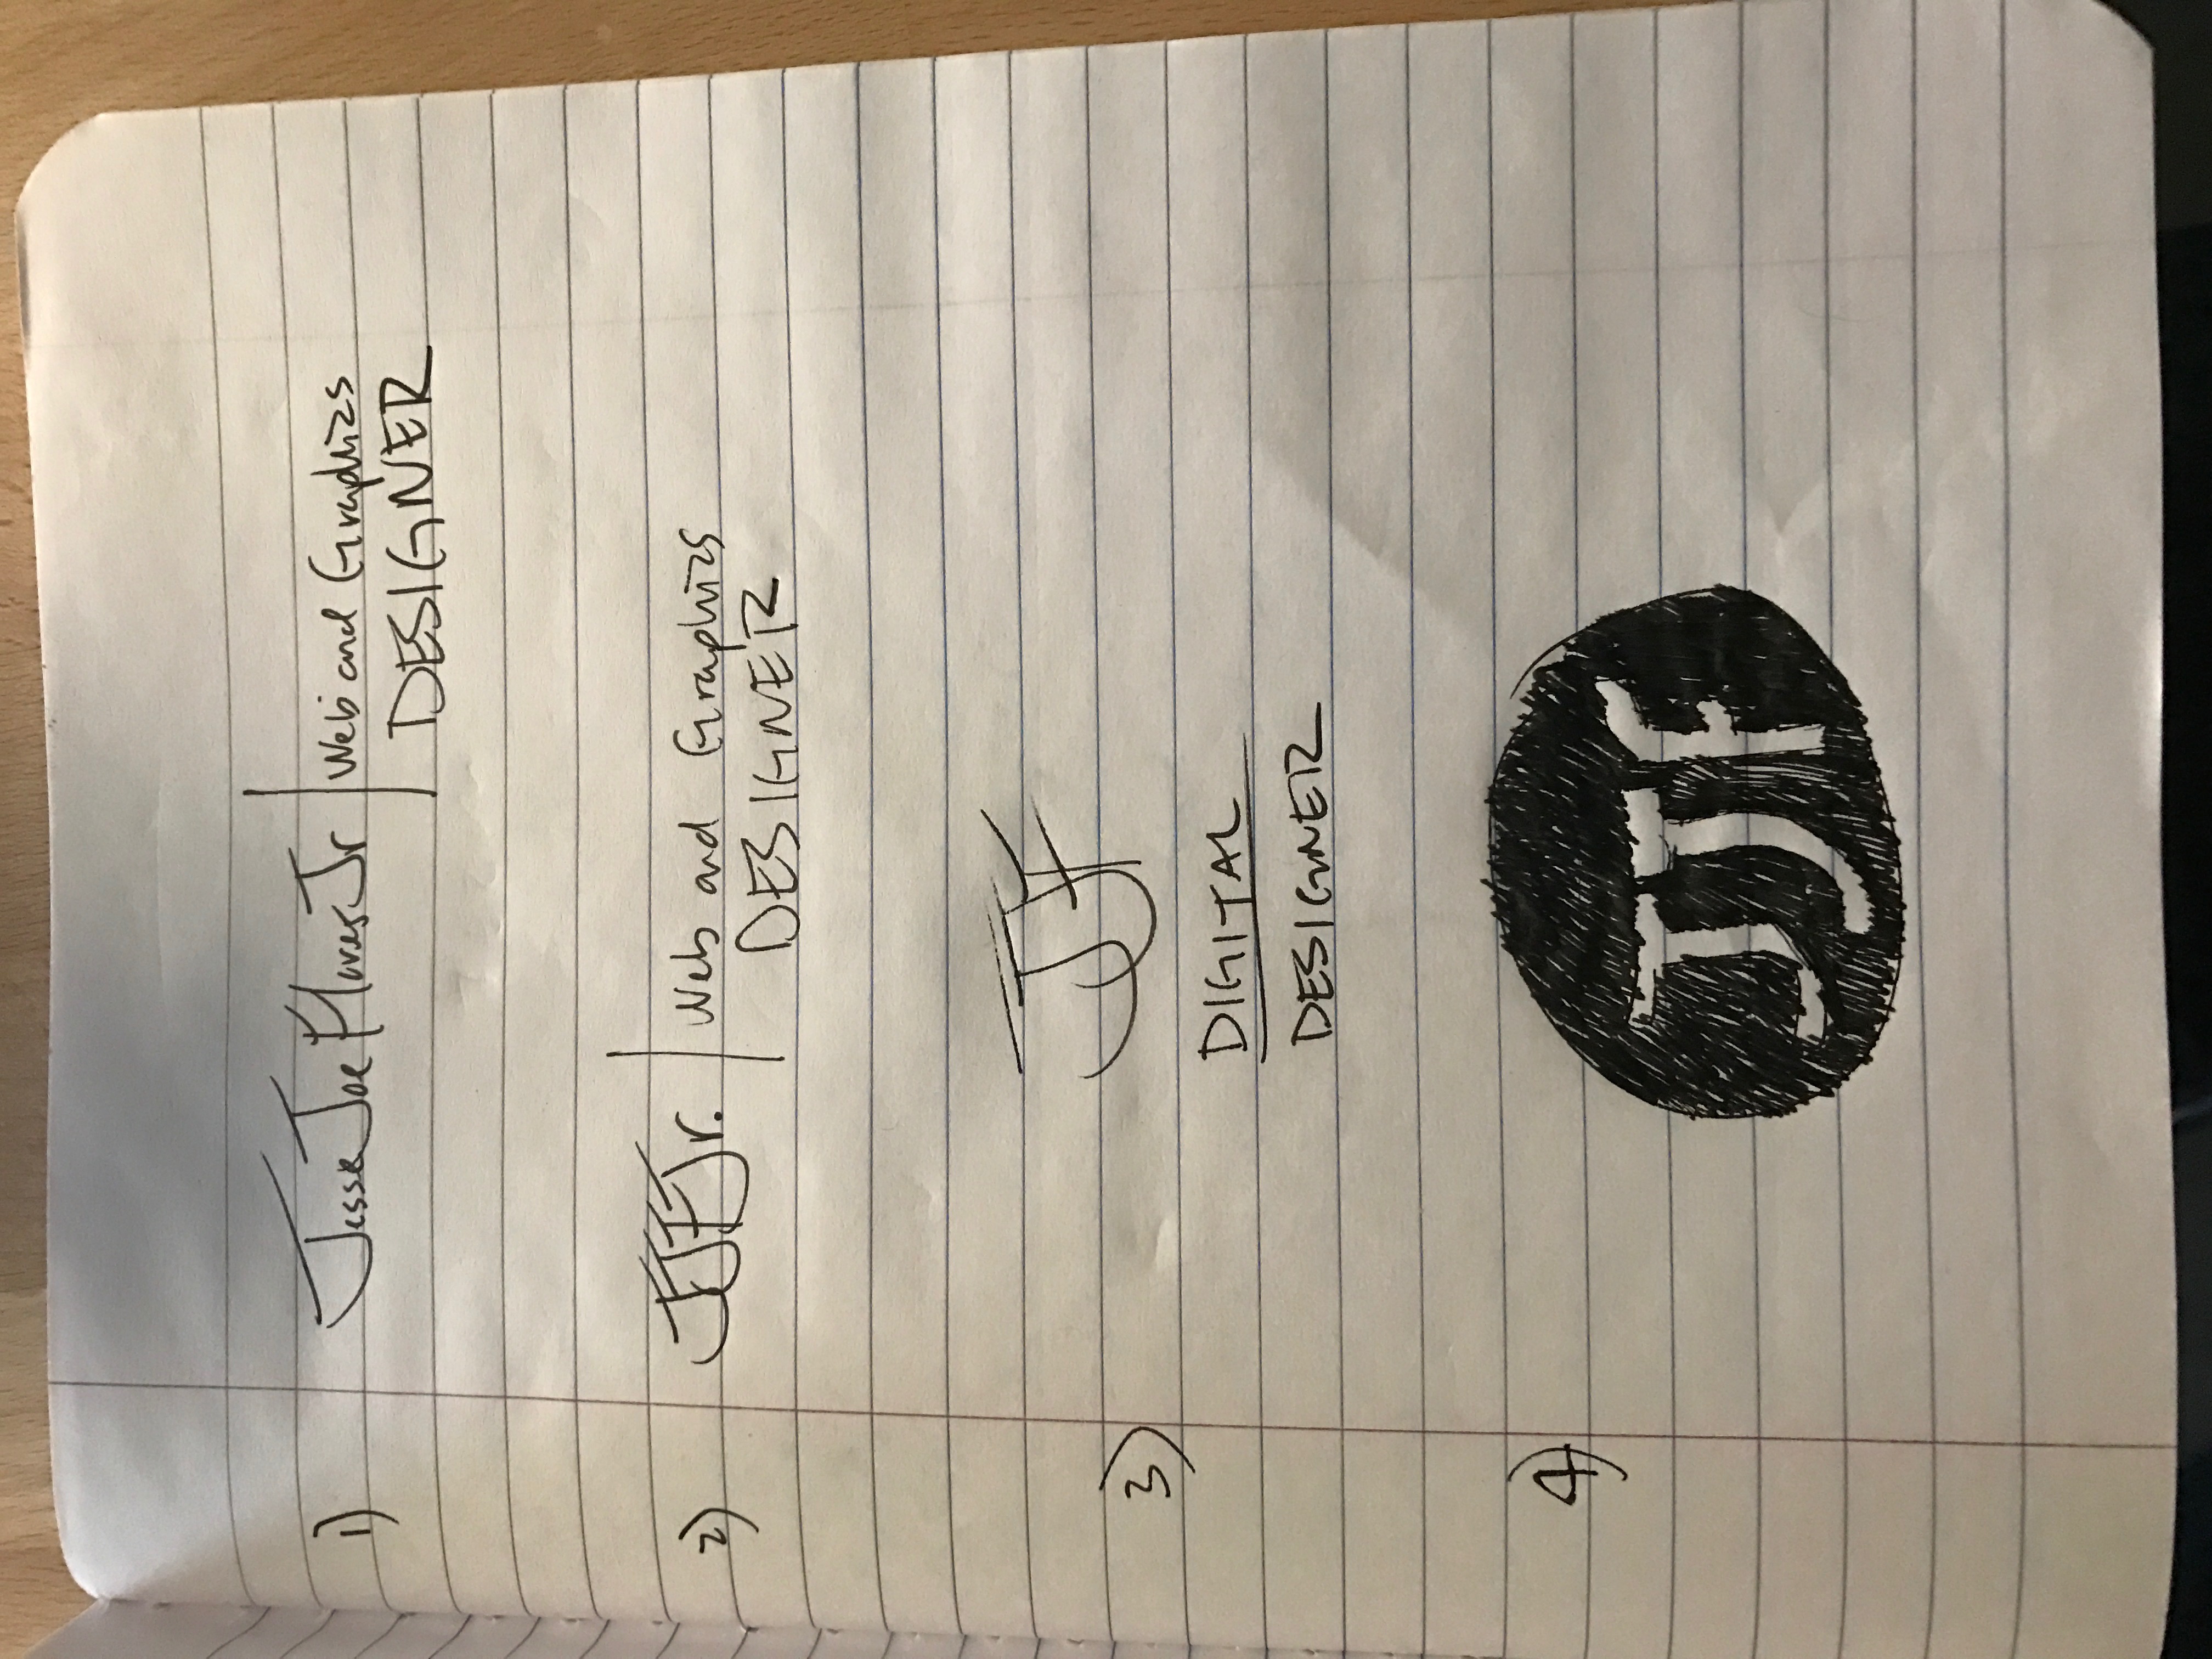 1) Jesse Joe Flores Jr | Web and Graphics
DESIGNER
2) JJFJr. | Web and Graphics
DESIGNER
3) JJF
DIGITAL
DESIGNER
4) JJF